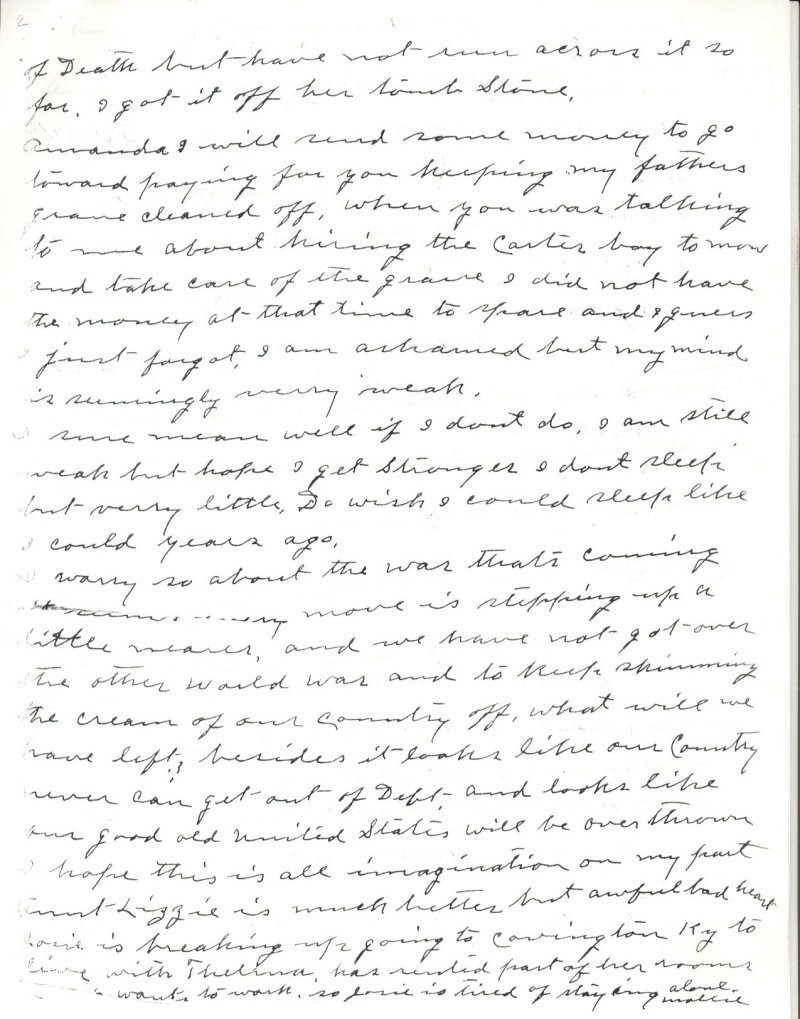 2
of Death but have not run across it so
far. I got it off her tomb Stone.
Amanda I will send some money to go
toward paying for you keeping my fathers
grave cleaned off, when you was talking
to me about hiring the Carter boy to mow
and take care of the grave I did not have
the money at that time to spare and I guess
I just forgot, I am ashamed but my mind
is seemingly verry weak.
I sure mean well if I dont do, I am still
weak but hope I get Stronger I dont sleep
but verry little, Do wish I could sleep like
I could years ago.
I worry so about the war thats coming
move is stepping up a
little nearer, and we have not got over
the other World War and to keep skimming
the cream of our Country off, what will we
have left, besides it looks like our Country
never can get out of Dept, and looks like
our good old United States will be over thrown
I hope this is all imagination on my part
Aunt Lizzie is much better but awful bad heart
Josie is breaking up going to Covington Ky to
live with Thelma, has rented part of her rooms
wants to work. so Josie is tired of staying alone.
mollie